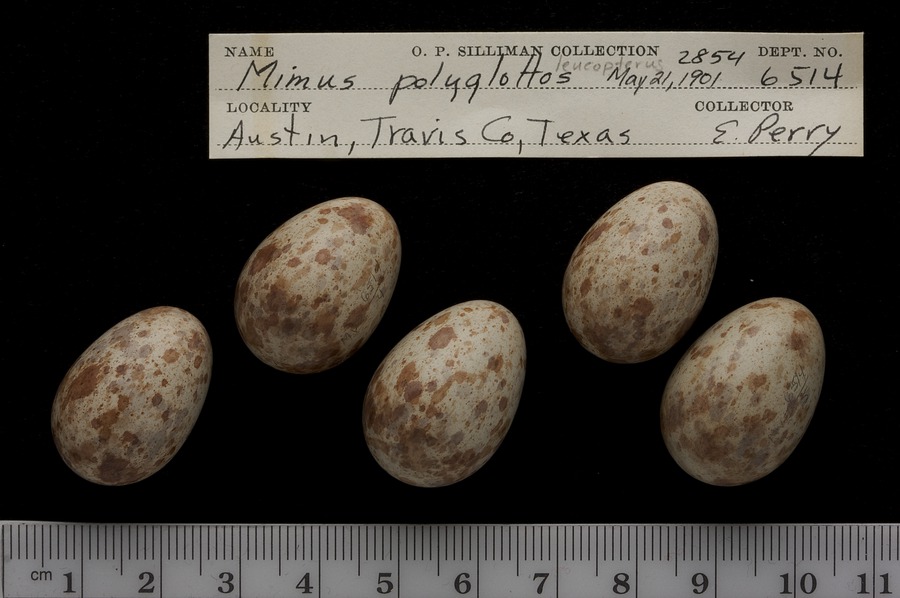 NAME O. P. SILLIMAN COLLECTION 2854 DEPT. NO.
Mimus polyglottos leucopterus May 21, 1901 6514
LOCALITY COLLECTOR
Austin, Travis Co, Texas E. Perry
cm 1 2 3 4 5 6 7 8 9 10 11